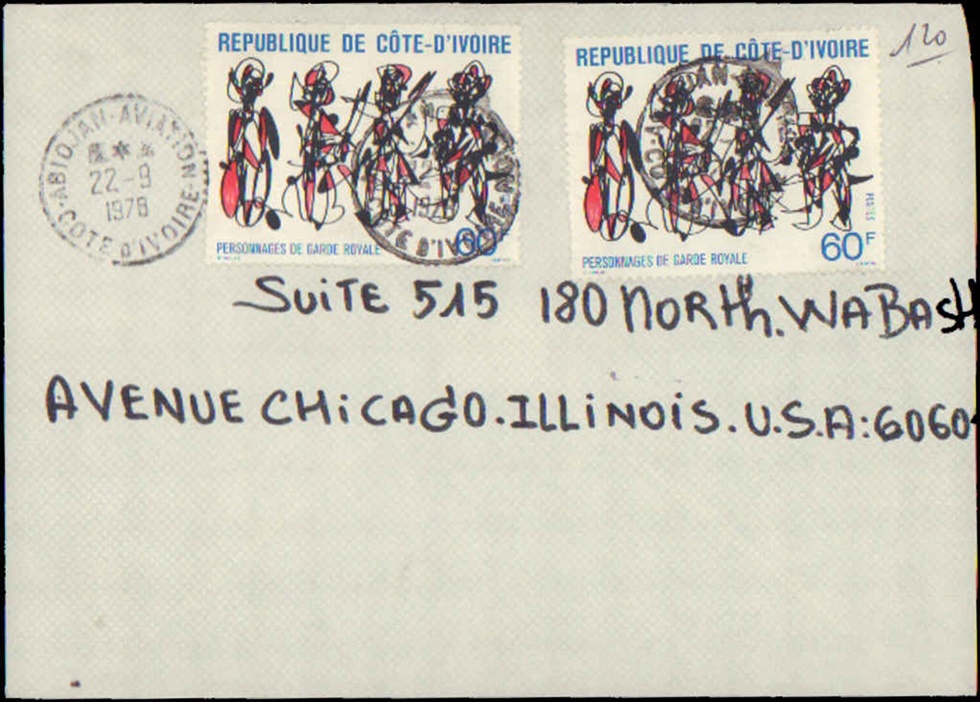 120
REPUBLIQUE DE CÔTE-D'IVOIRE
PERSONNAGES DE GARDE ROYALE
60F
REPUBLIQUE DE CÔTE-D'IVOIRE
POSTES
PERSONNAGES DE GARDE ROYALE
60F
ABIDJAN-AVIATION
22-9
1978
CÔTE D'IVOIRE
SUITE 515 180 NORTH. WABASH
AVENUE CHICAGO. ILLINOIS. U.S.A: 6060